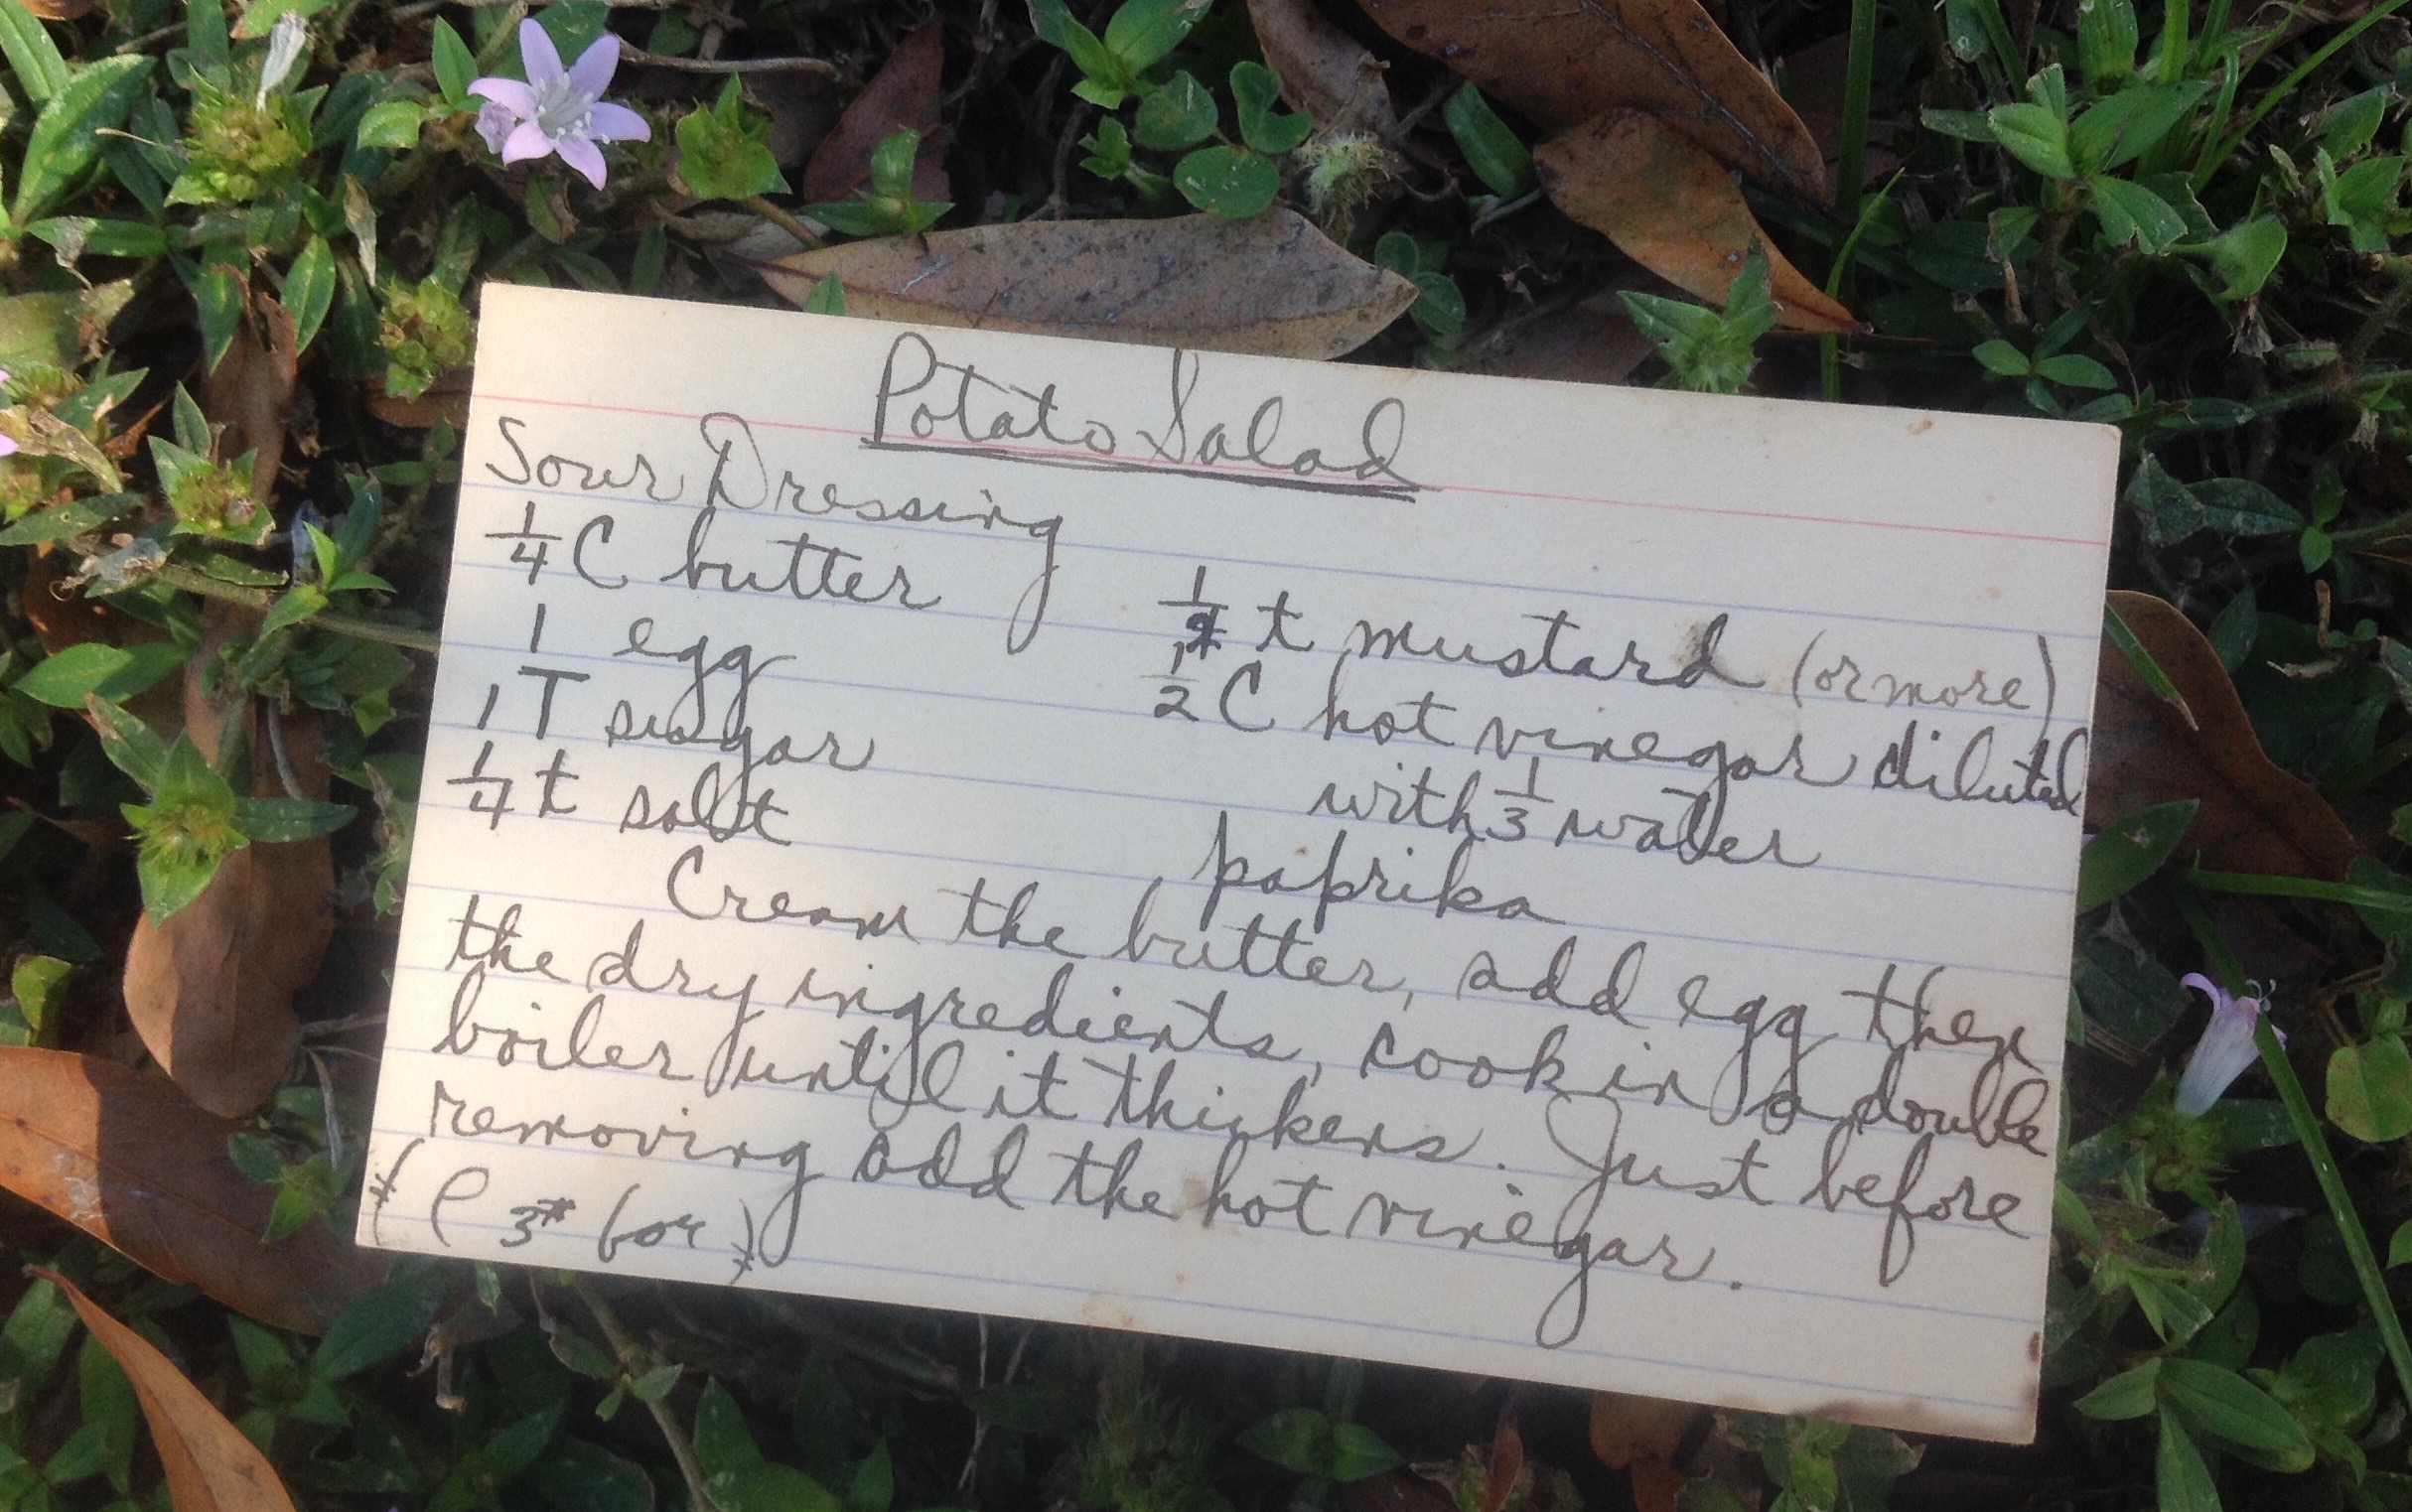 Potato Salad
Sour Dressing
1/4 C butter
1 egg
1 T sugar
1/4 t salt
t mustard (or more)
1/2 C hot vinegar diluted
with 1/3 water
paprika
Cream the butter, add egg then
the dry ingredients, cook in a double
boiler until it thickens. Just before
removing add the hot vinegar.